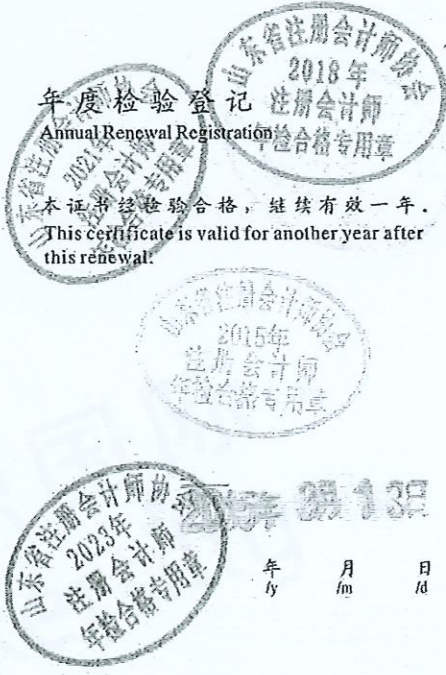 山东省注册会计师协会
2018年
注册会计师
年检合格专用章
年度检验登记
Annual Renewal Registration
山东省注册会计师协会
2021年
注册会计师
年检合格专用章
本证书经检验合格，继续有效一年。
This certificate is valid for another year after
this renewal.
山东省注册会计师协会
2015年
注册会计师
年检合格专用章
2015年 3月13日
山东省注册会计师协会
2023年
注册会计师
年检合格专用章
年 月 日
/y /m /d